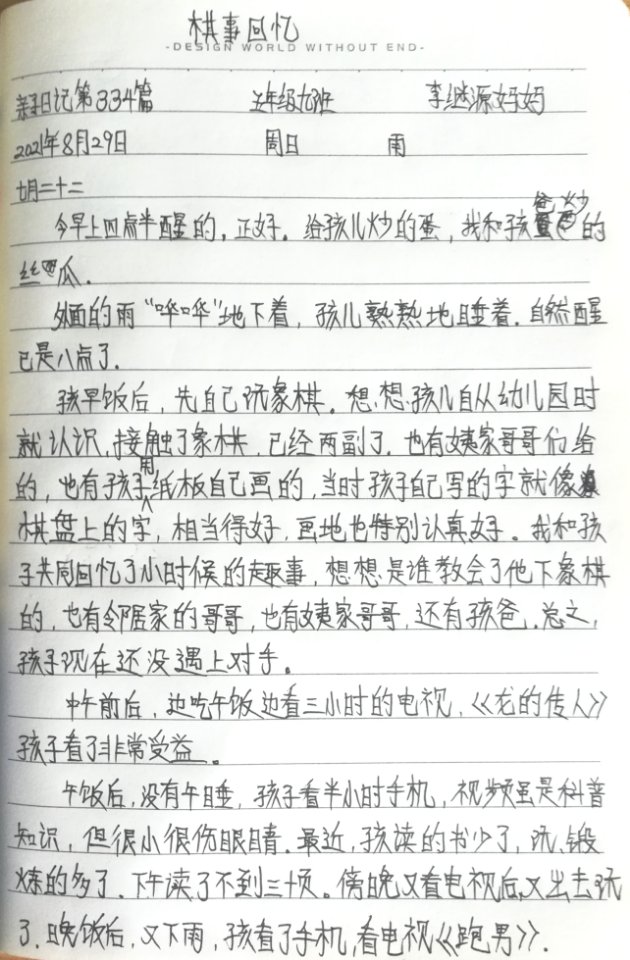 棋事回忆
-DESIGN WORLD WITHOUT END-
亲子日记第334篇 五年级九班 李继源妈妈
2021年8月29日 周日 雨
七月二十二
今早上四点半醒的,正好。给孩儿炒的蛋,我和孩爸炒的
丝瓜.
外面的雨“哗哗”地下着,孩儿熟熟地睡着.自然醒
已是八点了.
孩早饭后,先自己玩象棋。想想孩儿自从幼儿园时
就认识,接触了象棋,已经两副了.也有姨家哥哥们给
的,也有孩子用纸板自己画的,当时孩子自己写的字就像
棋盘上的字,相当得好,画地也特别认真好。我和孩
子共同回忆了小时候的趣事,想想是谁教会了他下象棋
的,也有邻居家的哥哥,也有姨家哥哥,还有孩爸.总之,
孩子现在还没遇上对手。
中午前后,边吃午饭边看三小时的电视,《龙的传人》
孩子看了非常受益。
午饭后,没有午睡,孩子看半小时手机,视频虽是科普
知识,但很小很伤眼睛.最近,孩读的书少了,玩、锻
炼的多了.下午读了不到三十页。傍晚又看电视后,又出去玩
了.晚饭后,又下雨,孩看了手机,看电视《跑男》.